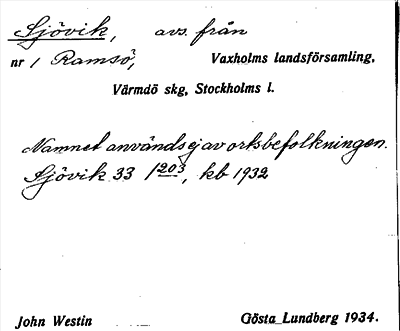 Sjövik, avs. från
nr 1 Ramsö, Vaxholms landsförsamling,
Värmdö skg, Stockholms l.
Namnet användes ej av ortsbefolkningen.
Sjövik 33 1/203, kb 1932
John Westin Gösta Lundberg 1934.